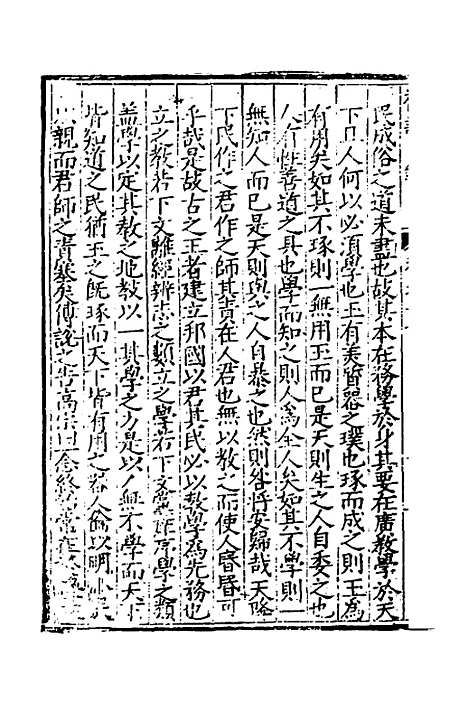 民成俗之道未盡也故其本在務學於身其要在廣教學於天
下曰人何以必須學也玉有美質器之璞也琢而成之則玉為
有用矣如其不琢則一無用玉而已是天則生之人自委之也
人有性善道之具也學而知之則人為全人矣如其不學則一
無知人而已是天則與之人自暴之也然則咎將安歸哉天降
下民作之君作之師其責在人君也無以教之而使人昏昏可
乎哉是故古之王者建立邦國以君其民必以教學為先務也
立之教若下文離經辨志之類立之學若下文家塾黨庠之類
蓋學以定其教之地教以一其學之方是以人無不學而天下
皆知道之民猶玉之既琢而天下皆有用之器人倫以明
以親而君師之責塞矣傅說之告高宗曰念終始典在